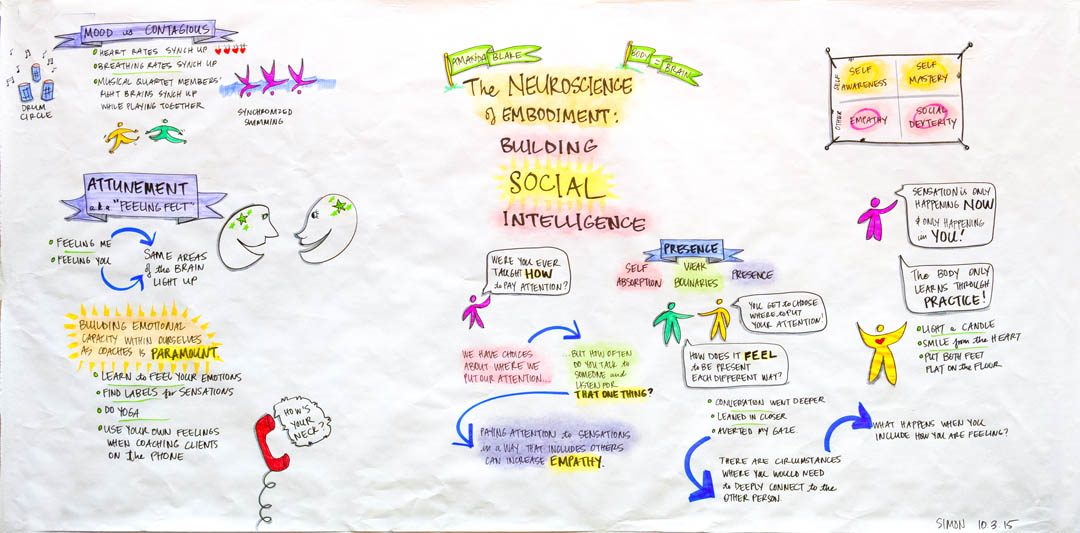 MOOD is CONTAGIOUS
HEART RATES SYNCH UP
BREATHING RATES SYNCH UP
MUSICAL QUARTET MEMBERS'
RIGHT BRAINS SYNCH UP
WHILE PLAYING TOGETHER
DRUM
CIRCLE
SYNCHRONIZED
SWIMMING
ATTUNEMENT
a.k.a "FEELING FELT"
FEELING ME
FEELING YOU
SAME AREAS
of the BRAIN
LIGHT UP
BUILDING EMOTIONAL
CAPACITY WITHIN OURSELVES
AS COACHES IS PARAMOUNT.
LEARN to FEEL YOUR EMOTIONS
FIND LABELS for SENSATIONS
DO YOGA
USE YOUR OWN FEELINGS
WHEN COACHING CLIENTS
ON the PHONE
HOW'S
YOUR
NECK?
AMANDA BLAKE
BODY = BRAIN
The NEUROSCIENCE
of EMBODIMENT:
BUILDING
SOCIAL
INTELLIGENCE
WERE YOU EVER
TAUGHT HOW
to PAY ATTENTION?
WE HAVE CHOICES
ABOUT WHERE WE
PUT OUR ATTENTION...
...BUT HOW OFTEN
DO YOU TALK to
SOMEONE and
LISTEN FOR
THAT ONE THING?
PAYING ATTENTION to SENSATIONS
in a WAY THAT INCLUDES OTHERS
CAN INCREASE EMPATHY.
PRESENCE
SELF
ABSORPTION
WEAK
BOUNARIES
PRESENCE
YOU GET to CHOOSE
WHERE to PUT
YOUR ATTENTION!
HOW DOES IT FEEL
to BE PRESENT
EACH DIFFERENT WAY?
CONVERSATION WENT DEEPER
LEANED IN CLOSER
AVERTED MY GAZE.
THERE ARE CIRCUMSTANCES
WHERE YOU WOULD NEED
to DEEPLY CONNECT to the
OTHER PERSON.
WHAT HAPPENS WHEN YOU
INCLUDE HOW YOU ARE FEELING?
SELF
SELF
AWARENESS
SELF
MASTERY
OTHER
EMPATHY
SOCIAL
DEXTERITY
SENSATION IS ONLY
HAPPENING NOW
& ONLY HAPPENING
in YOU!
THE BODY ONLY
LEARNS THROUGH
PRACTICE!
LIGHT a CANDLE
SMILE from the HEART
PUT BOTH FEET
FLAT ON the FLOOR
SIMON 10.3.15